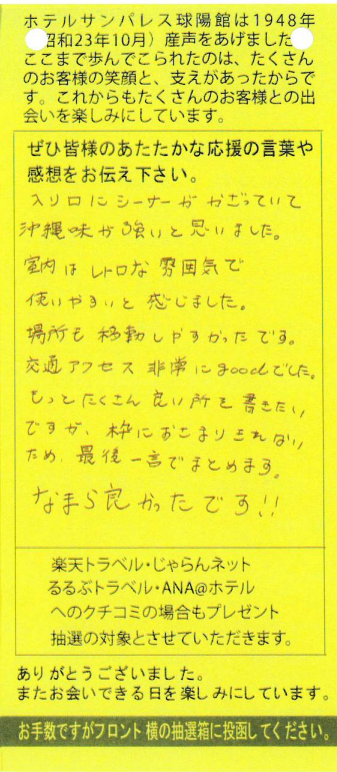 ホテルサンパレス球陽館は1948年
昭和23年10月）産声をあげました
ここまで歩んでこられたのは、たくさん
のお客様の笑顔と、支えがあったからで
す。これからもたくさんのお客様との出
会いを楽しみにしています。
ぜひ皆様のあたたかな応援の言葉や
感想をお伝え下さい。
入り口にシーサーがかざっていて
沖縄味が強いと思いました。
室内はレトロな雰囲気で
使いやすいと感じました。
場所も移動しやすかったです。
交通アクセス非常にgoodでした。
もっとたくさん良い所を書きたい
ですが、枠におさまりきれない
ため、最後一言でまとめます。
なまら良かったです!!
楽天トラベル・じゃらんネット
るるぶトラベル・ANA@ホテル
へのクチコミの場合もプレゼント
抽選の対象とさせていただきます。
ありがとうございました。
またお会いできる日を楽しみにしています。
お手数ですがフロント横の抽選箱に投函してください。